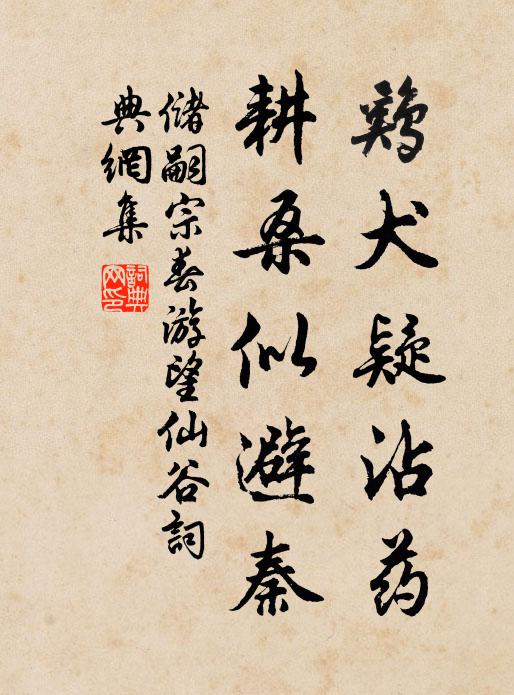 鷄犬疑沾药
耕桑似避秦
儲嗣宗春游望仙谷詞
典網集
詞典网印